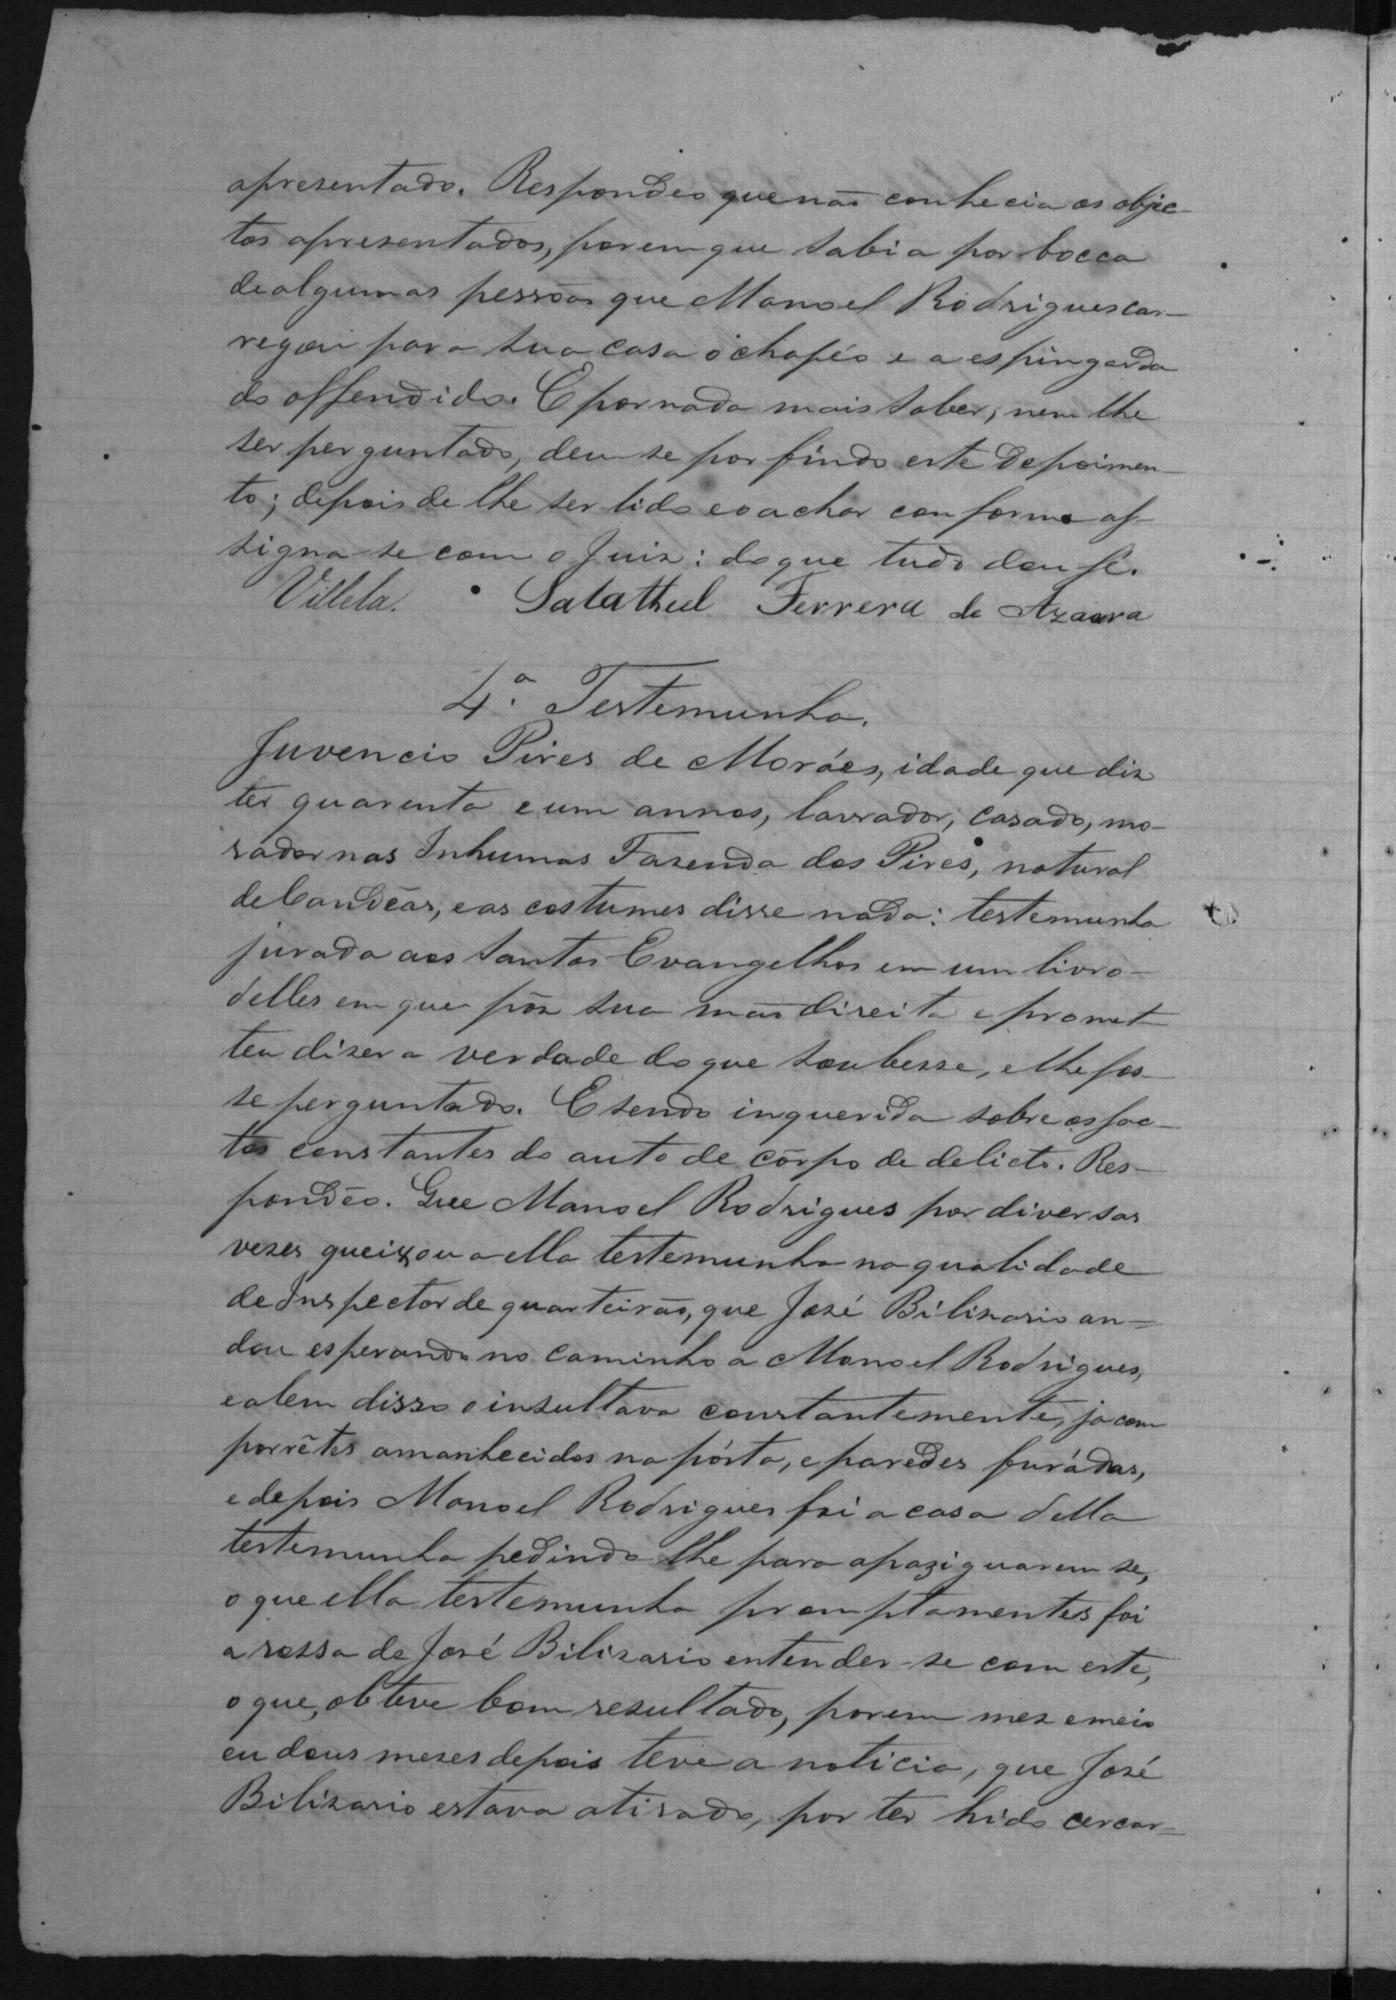 apresentado. Respondeo que não conhecia os objec-
tos apresentados, porem que sabia por bocca
de algumas pessôas que Manoel Rodrigues car-
regou para sua casa o chapéo e a espingarda
do offendido. E por nada mais saber, nem lhe
ser perguntado, deu-se por findo este depoimen-
to; depois de lhe ser lido e o achar conforme as-
signa-se com o Juiz: do que tudo dou fé.
Villela. Salathiel Ferrera de Azaara
4.ª Testemunha.
Juvencio Pires de Moráes, idade que diz
ter quarenta e um annos, lavrador, casado, mo-
rador nas Inhumas Fazenda dos Pires, natural
de Candêas, e aos costumes disse nada: testemunha
jurada aos Santos Evangelhos em um livro
delles em que pôz sua mão direita e promet-
teu dizer a verdade do que soubesse, e lhe fos-
se perguntado. E sendo inquerida sobre os fac-
tos constantes do auto de côrpo de delicto. Res-
pondêo. Que Manoel Rodrigues por diversas
vezes queixou a ella testemunha na qualidade
de Inspector de quarteirão, que José Bilizario an-
dou esperando no caminho a Manoel Rodrigues,
e alem disso o insultava constantemente, ja com
porrêtes amanhecidos na pórta, e paredes furádas,
e depois Manoel Rodrigues foi a casa della
testemunha pedindo lhe para apaziguarem se,
o que ella testemunha promptamentes foi
a rossa de José Bilizario entender-se com este,
o que, obteve bom resultado, porem mez e meio
ou dous mezes depois teve a noticia, que José
Bilizario estava atirado, por ter hido cercar-